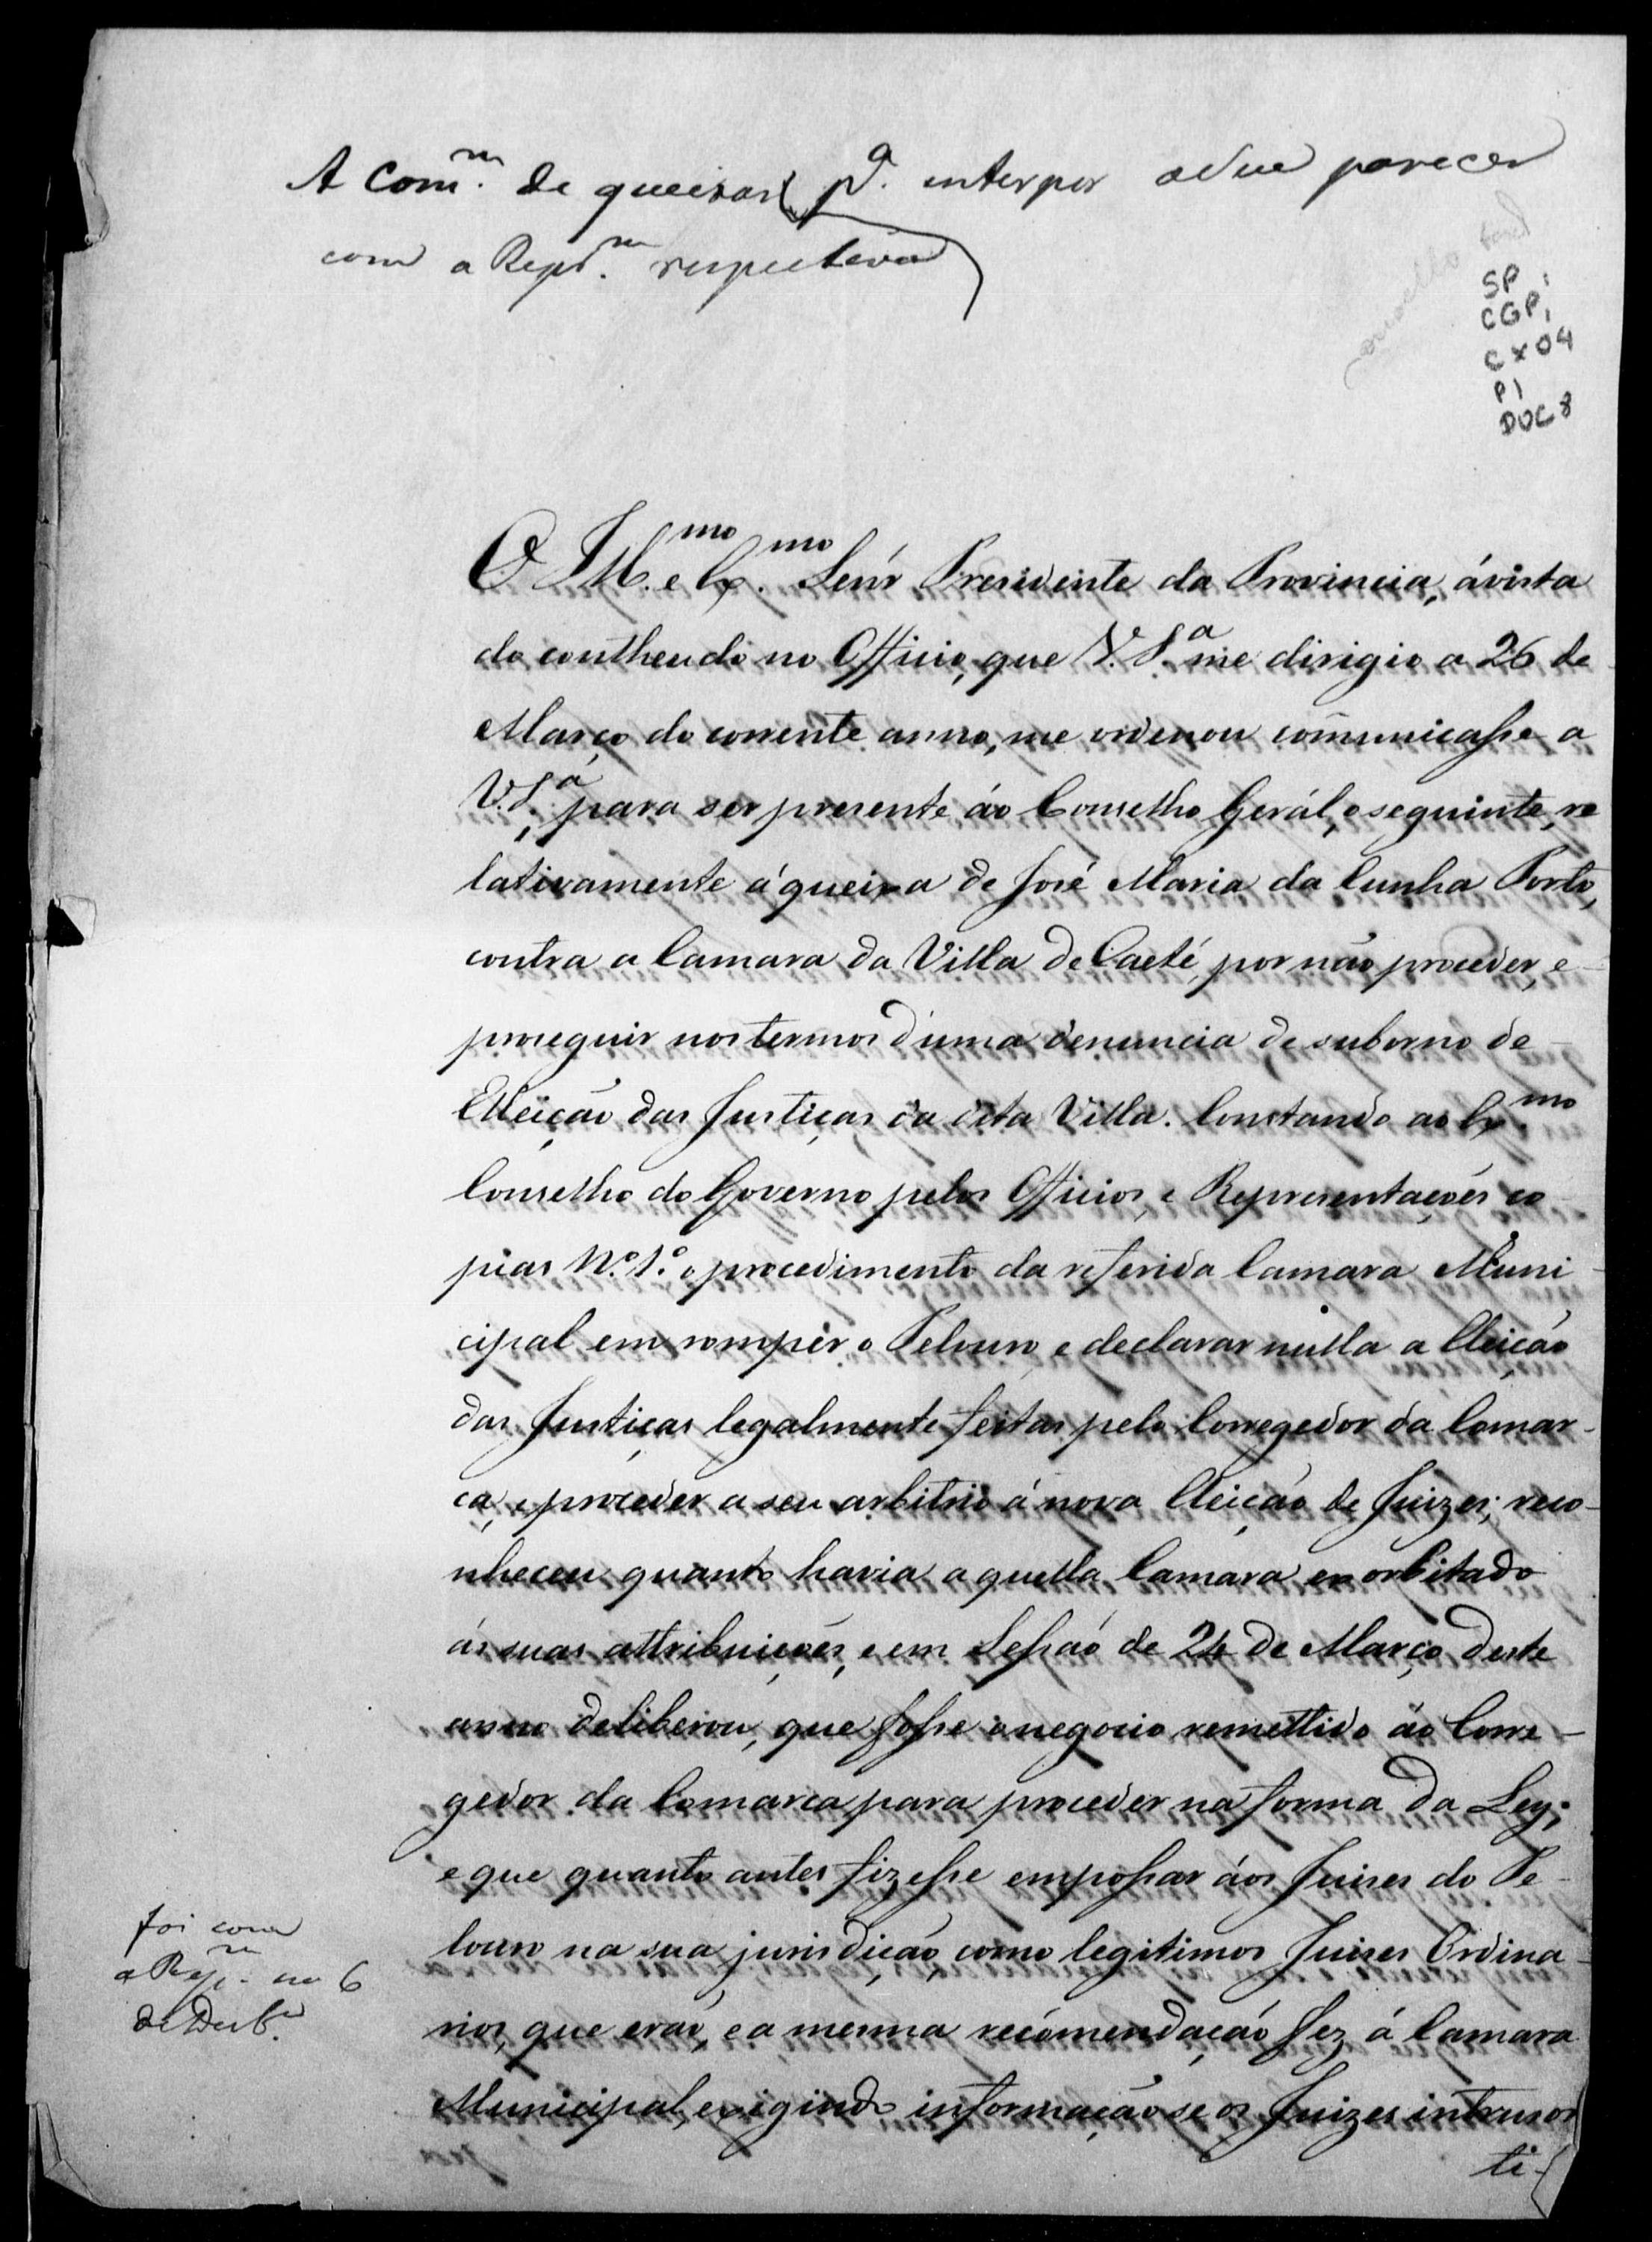 A Com.m de queixas p.a interpor o seu parecer
com a Repr.m respectiva
SP,
CGP,
CX 04
P1
DOC 8
O Ill.mo e Ex.mo Senr Presidente da Provincia, ávista
do contheudo no Officio, que V. S.a me dirigio a 26 de
Março do corrente anno, me ordenou comunicasse a
V. S.a, para ser presente áo Conselho Gerál, o seguinte, re
lativamente á queixa de José Maria da Cunha Porto,
contra a Camara da Villa de Caeté, por não proceder, e
proseguir nos termos d'uma denuncia de suborno de
Elleição das Justiças da dita Villa. Constando ao Ex.mo
Conselho do Governo pelos Officios, e Representações co
pias N.o 1.o o procedimento da referida Camara Muni
cipal em romper o Pelouro, e declarar nulla a Eleição
das Justiças legalmente feitas pelo Corregedor da Comar-
ca, e proceder a seu arbitrio á nova Eleição de Juizes; reco-
nheceu quanto havia aquella Camara exorbitado
ás suas attribuições, e em Sessaó de 24 de Março deste
anno deliberou, que fosse o negocio remettido áo Corre-
gedor da Comarca para proceder na forma da Ley;
e que quanto antes fizesse empossar áos Juises do Pe-
louro na sua jurisdição, como legitimos Juises Ordina-
rios, que eraó, e a mesma recómendaçaó fez á Camara
Municipal, exigindo informação se os Juizes intrusos
ti-
foi com
a Rep.m no 6
de Dezb.o